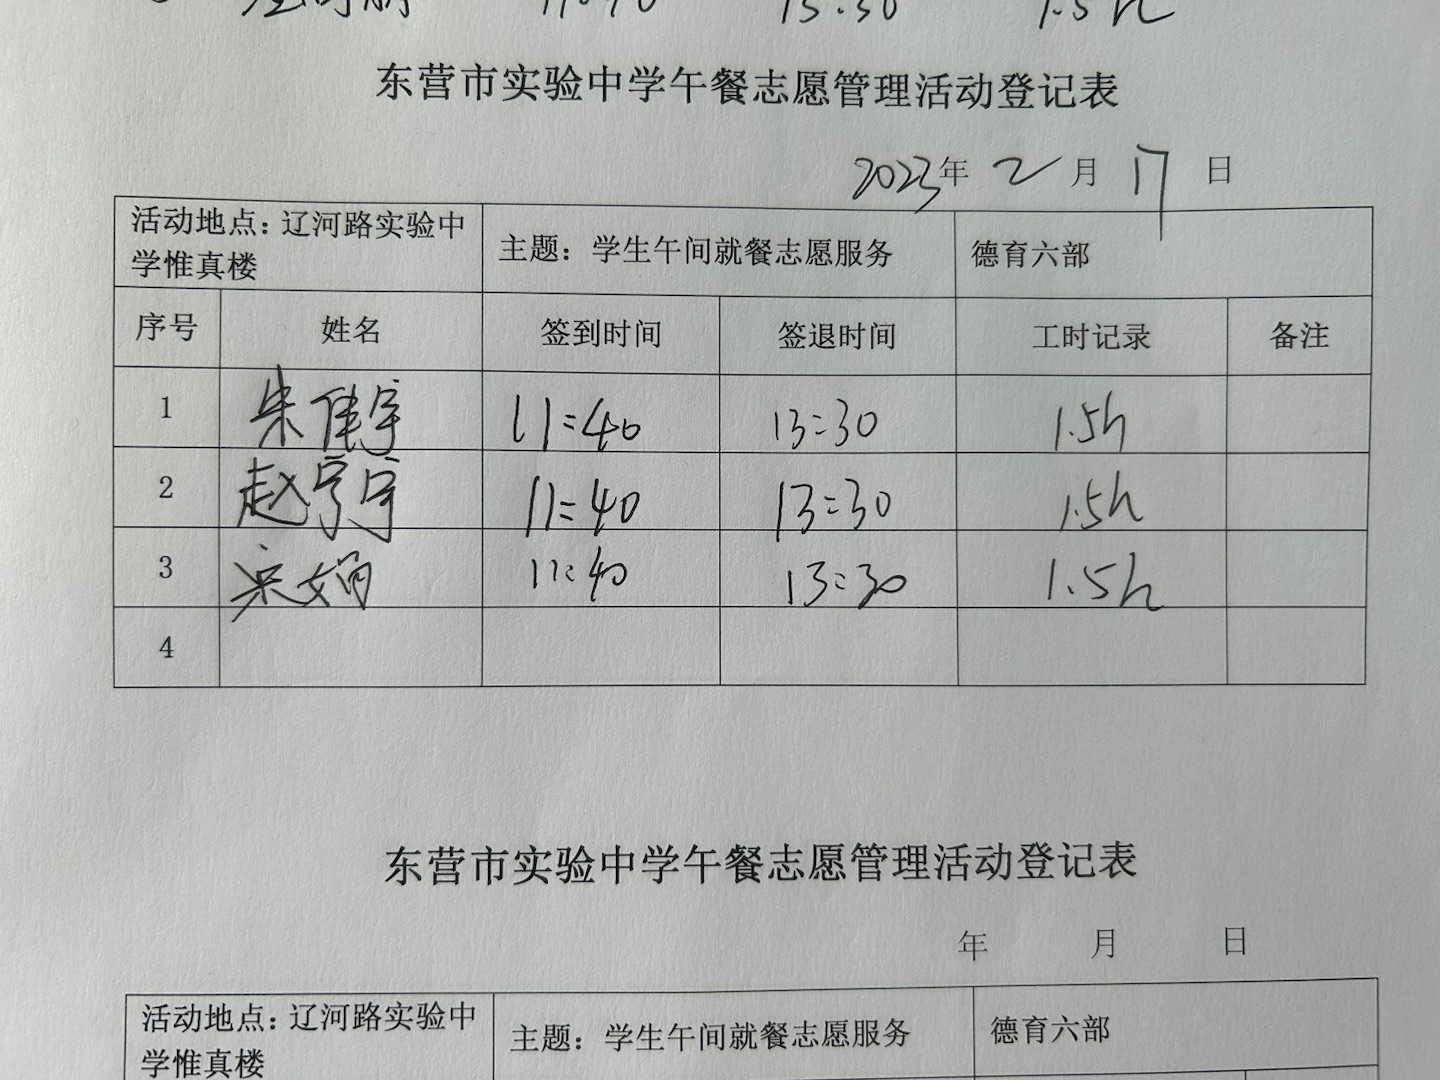 13:30 1.5h
东营市实验中学午餐志愿管理活动登记表
2023年 2月 17日
活动地点：辽河路实验中学惟真楼 主题：学生午间就餐志愿服务 德育六部
序号 姓名 签到时间 签退时间 工时记录 备注
1 朱佳宇 11:40 13:30 1.5h
2 赵亨宇 11:40 13:30 1.5h
3 宋娟 11:40 13:30 1.5h
4
东营市实验中学午餐志愿管理活动登记表
年 月 日
活动地点：辽河路实验中学惟真楼 主题：学生午间就餐志愿服务 德育六部